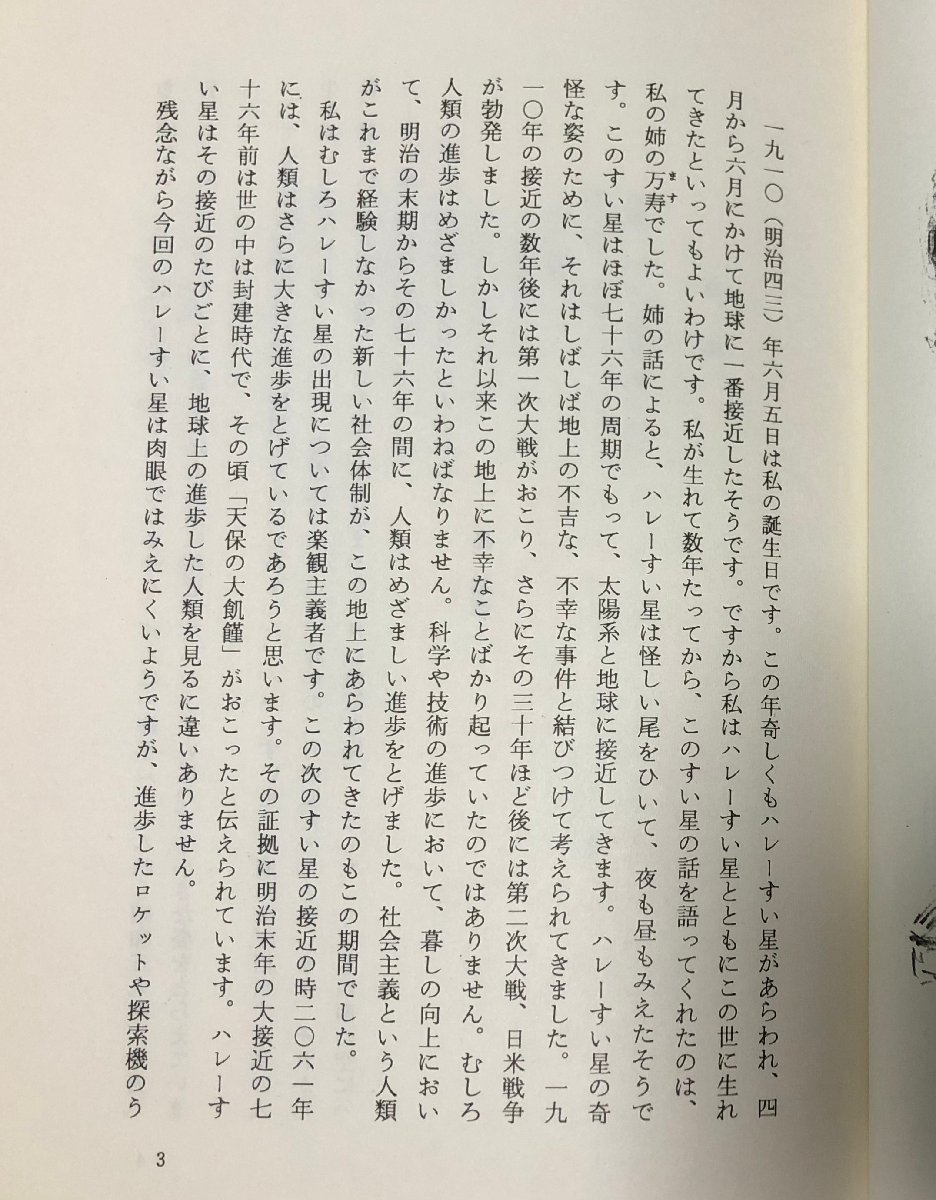 一九一〇（明治四三）年六月五日は私の誕生日です。この年奇しくもハレーすい星があらわれ、四
月から六月にかけて地球に一番接近したそうです。ですから私はハレーすい星とともにこの世に生れ
てきたといってもよいわけです。私が生れて数年たってから、このすい星の話を語ってくれたのは、
私の姉の万寿でした。姉の話によると、ハレーすい星は怪しい尾をひいて、夜も昼もみえたそうで
ます
す。このすい星はほぼ七十六年の周期でもって、太陽系と地球に接近してきます。ハレーすい星の奇
怪な姿のために、それはしばしば地上の不吉な、不幸な事件と結びつけて考えられてきました。一九
一〇年の接近の数年後には第一次大戦がおこり、さらにその三十年ほど後には第二次大戦、日米戦争
が勃発しました。しかしそれ以来この地上に不幸なことばかり起っていたのではありません。むしろ
人類の進歩はめざましかったといわねばなりません。科学や技術の進歩において、暮しの向上におい
て、明治の末期からその七十六年の間に、人類はめざましい進歩をとげました。社会主義という人類
がこれまで経験しなかった新しい社会体制が、この地上にあらわれてきたのもこの期間でした。
私はむしろハレーすい星の出現については楽観主義者です。この次のすい星の接近の時二〇六一年
には、人類はさらに大きな進歩をとげているであろうと思います。その証拠に明治末年の大接近の七
十六年前は世の中は封建時代で、その頃「天保の大飢饉」がおこったと伝えられています。ハレーす
い星はその接近のたびごとに、地球上の進歩した人類を見るに違いありません。
残念ながら今回のハレーすい星は肉眼ではみえにくいようですが、進歩したロケットや探索機のう
3